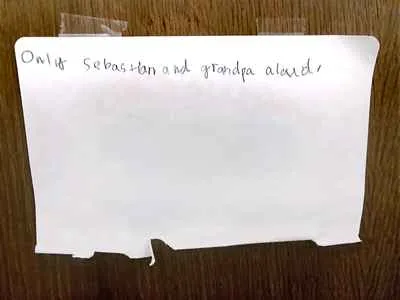 Only sebastian and grandpa aloud,